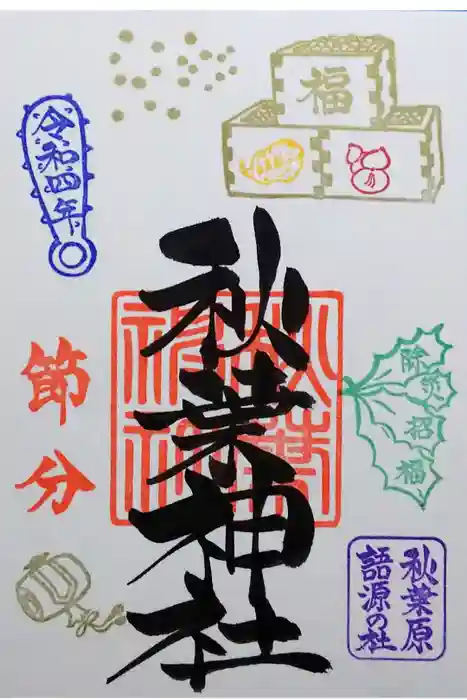 福
令和四年
秋葉神社
秋葉
神社
節分
除災
招福
秋葉原
語源の社